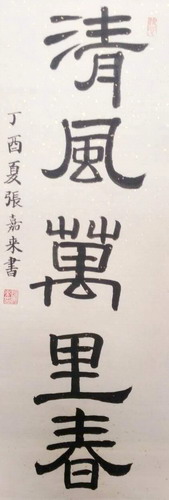 清風萬里春
丁酉夏張嘉來書